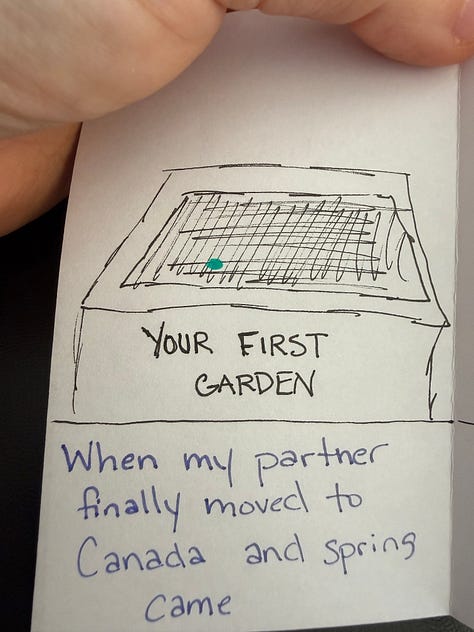 YOUR FIRST
GARDEN
When my partner
finally moved to
Canada and spring
came